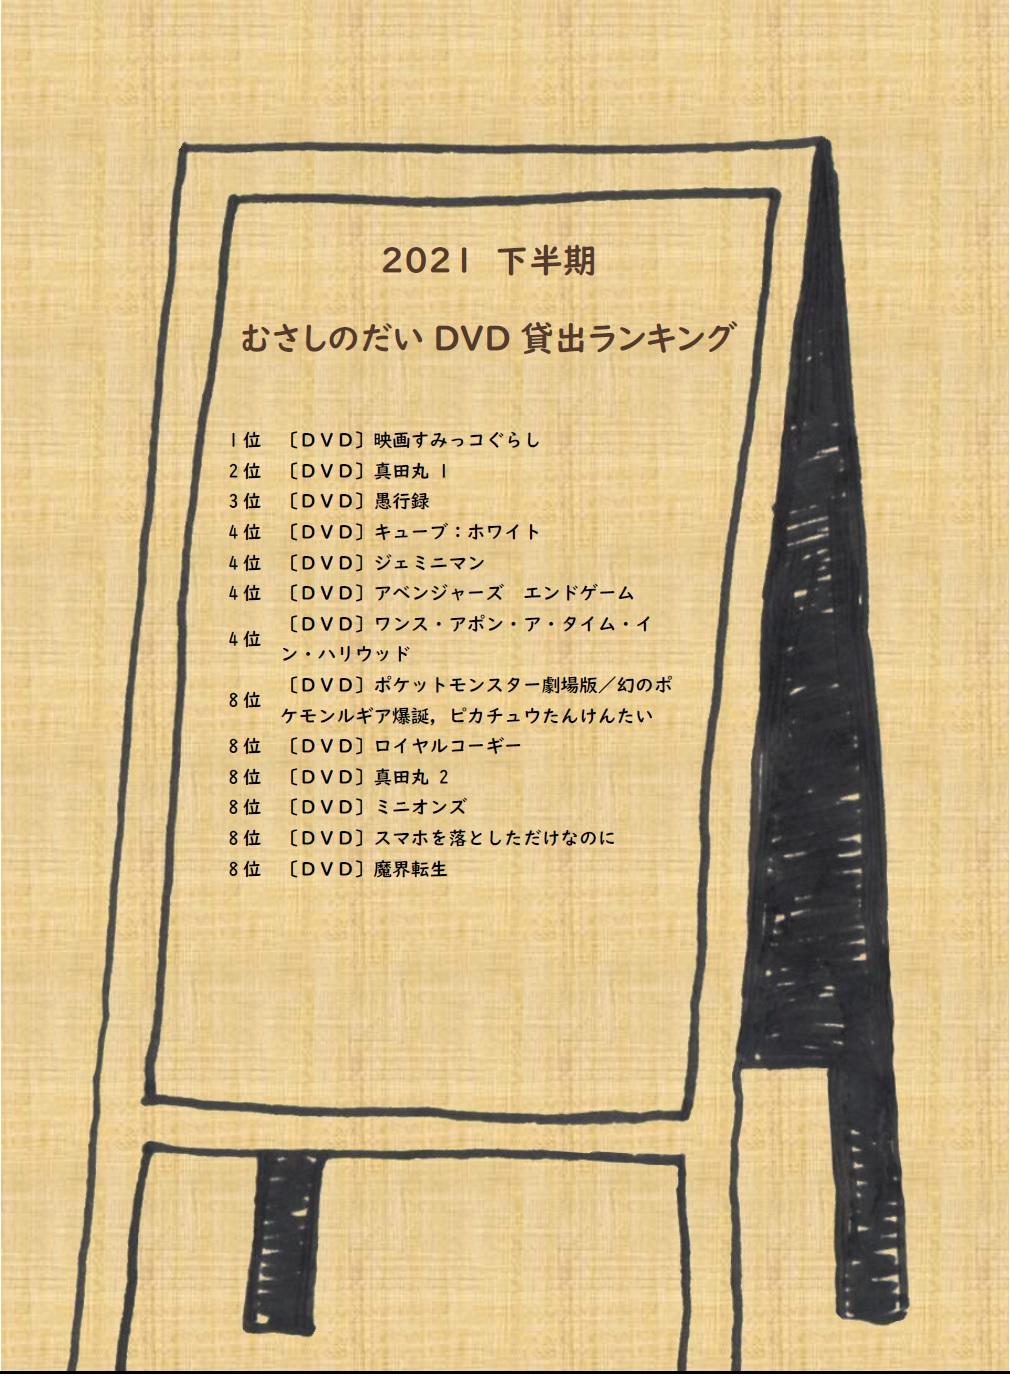 2021 下半期
むさしのだい DVD 貸出ランキング
1位 〔ＤＶＤ〕映画すみっコぐらし
2位 〔ＤＶＤ〕真田丸 1
3位 〔ＤＶＤ〕愚行録
4位 〔ＤＶＤ〕キューブ：ホワイト
4位 〔ＤＶＤ〕ジェミニマン
4位 〔ＤＶＤ〕アベンジャーズ　エンドゲーム
4位 〔ＤＶＤ〕ワンス・アポン・ア・タイム・イ
ン・ハリウッド
8位 〔ＤＶＤ〕ポケットモンスター劇場版／幻のポ
ケモンルギア爆誕，ピカチュウたんけんたい
8位 〔ＤＶＤ〕ロイヤルコーギー
8位 〔ＤＶＤ〕真田丸 2
8位 〔ＤＶＤ〕ミニオンズ
8位 〔ＤＶＤ〕スマホを落としただけなのに
8位 〔ＤＶＤ〕魔界転生